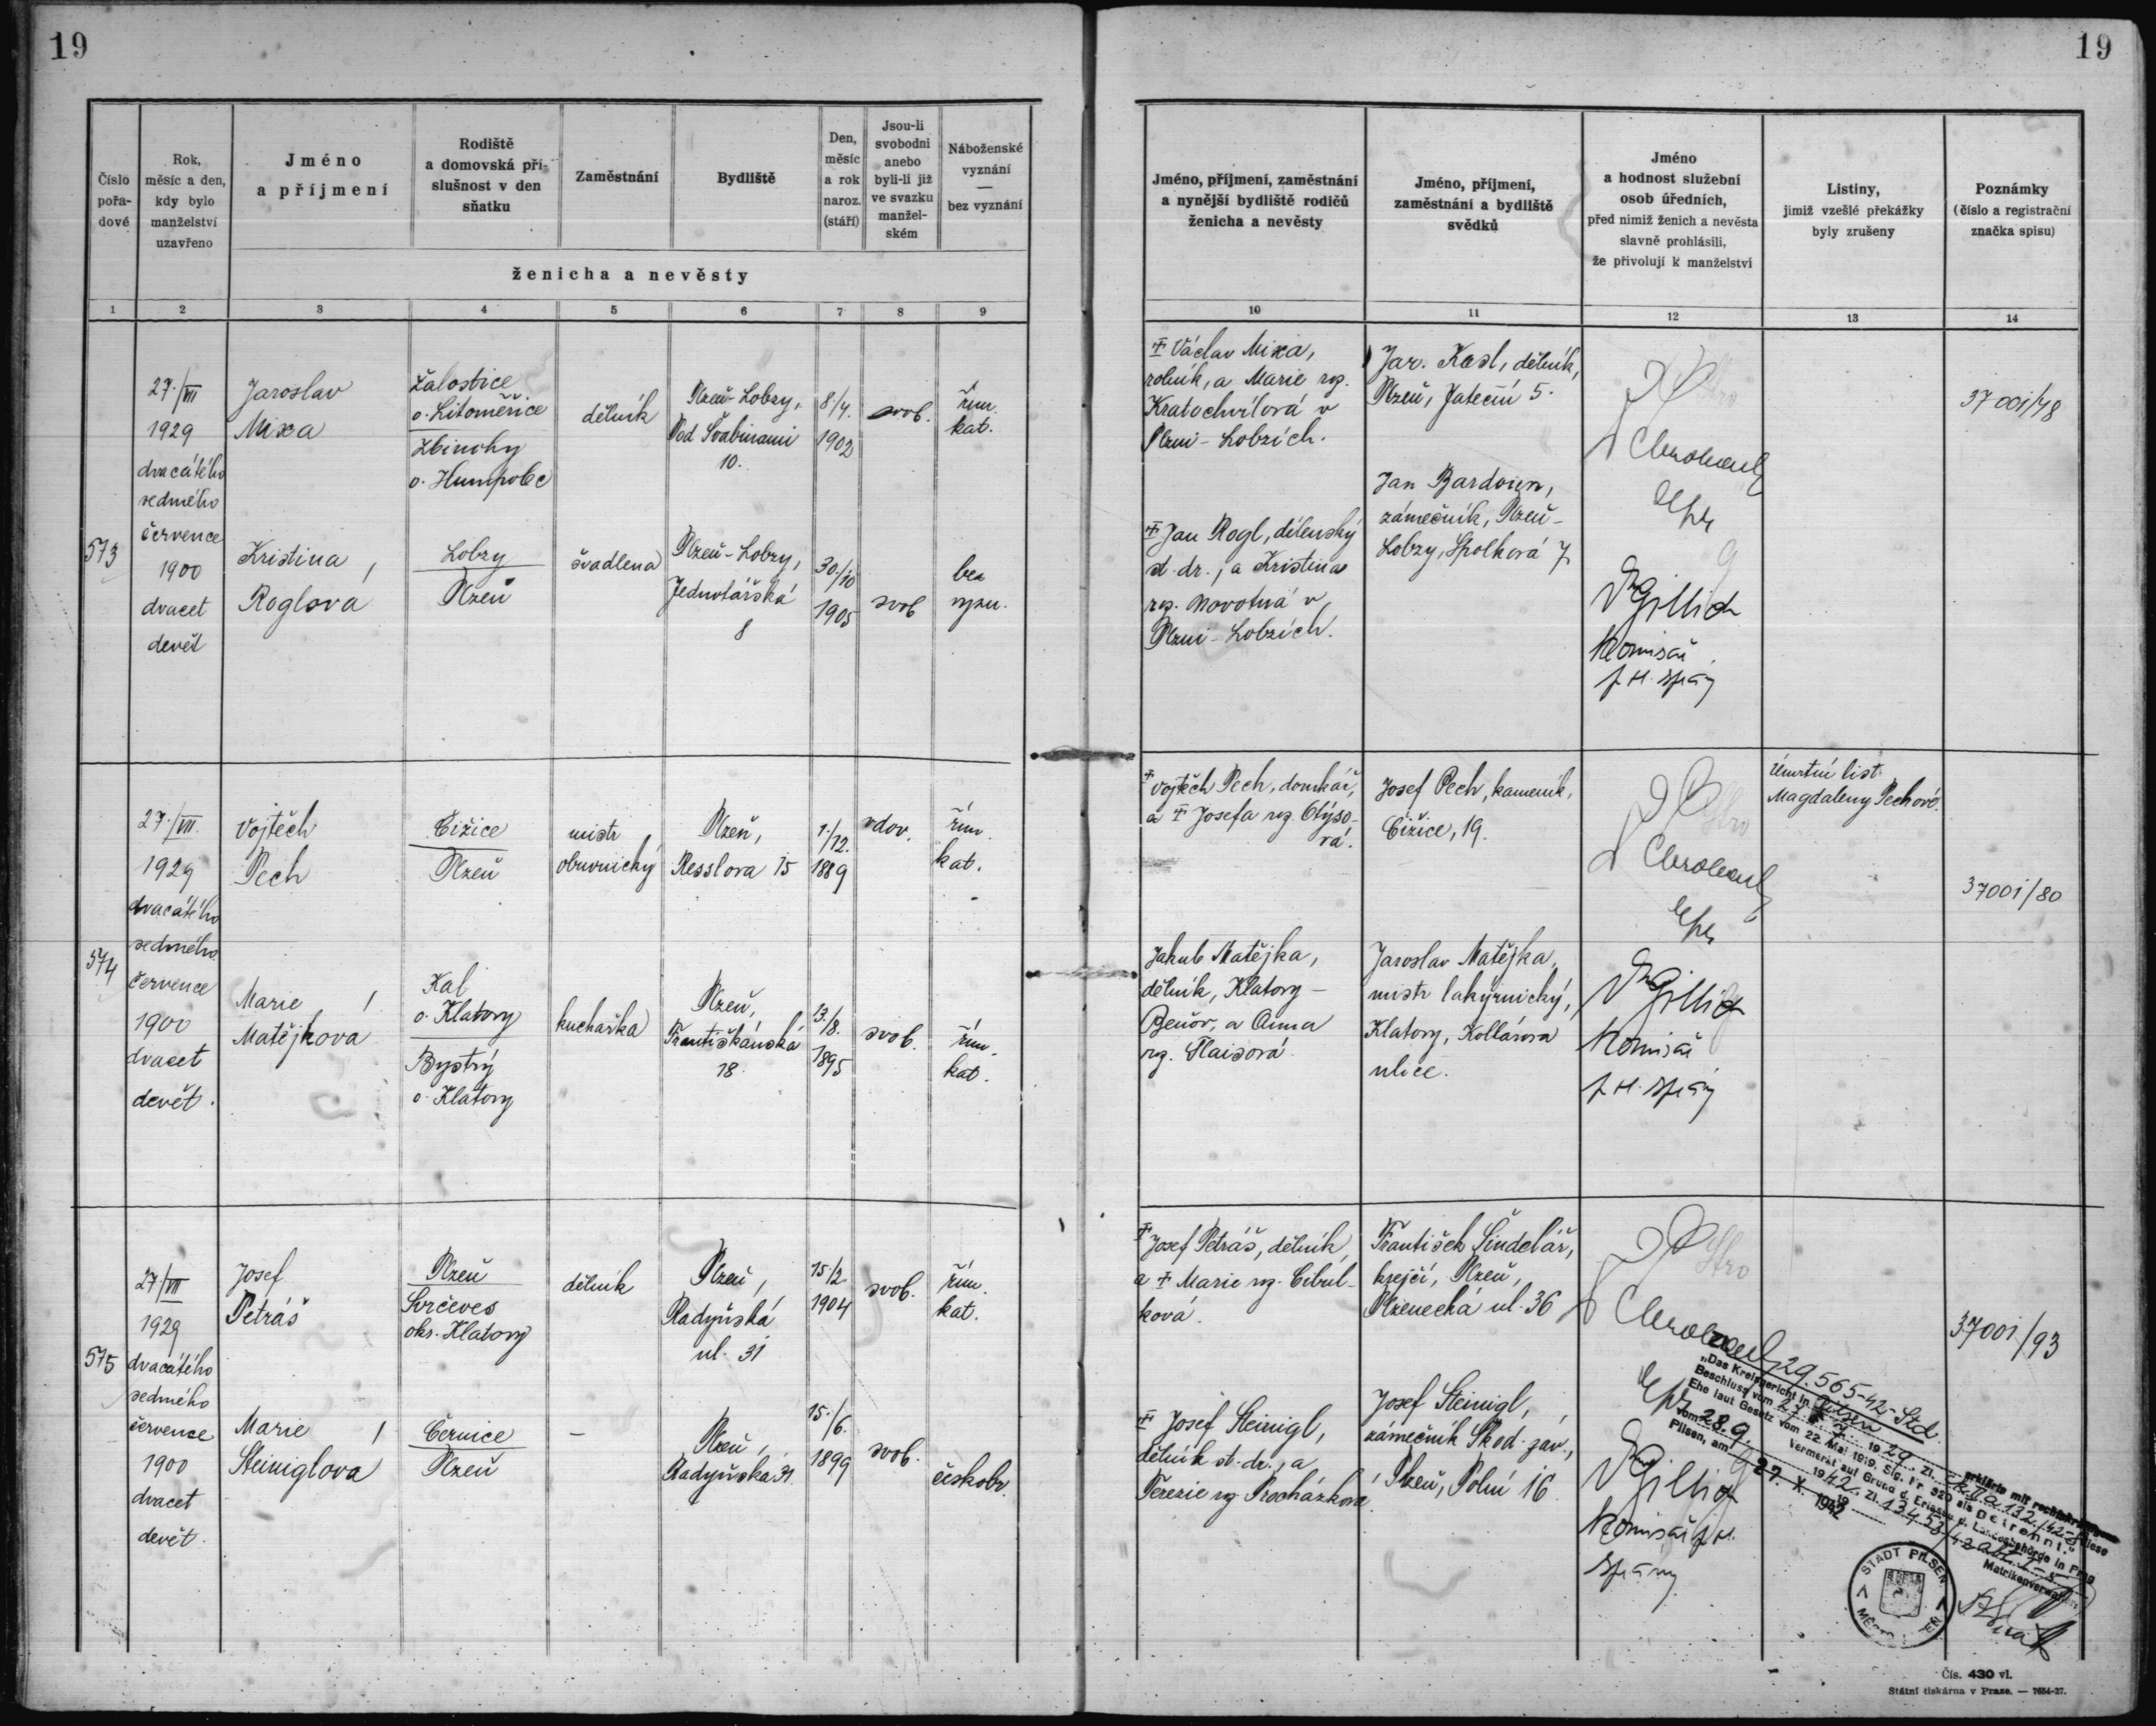 19
19
Číslo pořa-dové
Rok, měsíc a den, kdy bylo manželství uzavřeno
Jméno a příjmení
Rodiště a domovská pří-slušnost v den sňatku
Zaměstnání
Bydliště
Den, měsíc a rok naroz. (stáří)
Jsou-li svobodni anebo byli-li již ve svazku manžel-ském
Náboženské vyznání — bez vyznání
ženicha a nevěsty
1 2 3 4 5 6 7 8 9
Jméno, příjmení, zaměstnání a nynější bydliště rodičů ženicha a nevěsty
Jméno, příjmení, zaměstnání a bydliště svědků
Jméno a hodnost služební osob úředních, před nimiž ženich a nevěsta slavně prohlásili, že přivolují k manželství
Listiny, jimiž vzešlé překážky byly zrušeny
Poznámky (číslo a registrační značka spisu)
10 11 12 13 14
573
27./VII
1929
dvacátého
sedmého
července
1900
dvacet
devět
Jaroslav
Mixa
Žalostice
o. Litoměřice
Zbinohy
o. Humpolec
dělník
Plzeň-Lobzy,
Pod Švabinami
10.
8/4.
1902
svob.
řím.
kat.
Kristina
Roglova
Lobzy
Plzeň
švadlena
Plzeň-Lobzy,
Jednotářská
8
30./10
1905
svob
bez
vyzn.
Ŧ Václav Mixa,
rolník, a Marie roz.
Kratochvílová v
Plzni-Lobzích.
Ŧ Jan Rogl, dílenský
st. dr., a Kristina
roz. Novotná v
Plzni-Lobzích.
Jar. Kasl, dělník,
Plzeň, Jateční 5.
Jan Bardoien,
zámečník, Plzeň-
Lobzy, Spolková 7
Gillich
Komisař
p. H. správy
37001/78
574
27./VII.
1929
dvacátého
sedmého
července
1900
dvacet
devět.
Vojtěch
Pech
Čižice
Plzeň
mistr
obuvnický
Plzeň,
Resslova 15
1./12.
1889
vdov.
řím.
kat.
Marie
Matějkova
Kal
o. Klatovy
Bystrý
o. Klatovy
kuchařka
Plzeň,
Františkánská
18.
3./8.
1895
svob.
řím.
kat.
Ŧ Vojtěch Pech, domkář,
a Ŧ Josefa roz.
Jakub Matějka,
dělník, Klatovy-
Beňov, a Anna
roz. Flaisová.
Josef Pech, kameník,
Čižice, 19.
Jaroslav Matějka,
mistr lakýrnický,
Klatovy, Kollárova
ulice.
Gillich
Komisař
p. H. správy
Úmrtní list
Magdaleny Pechové.
37001/80
575
27/VII
1929
dvacátého
sedmého
července
1900
dvacet
devět.
Josef
Petráš
Plzeň
Svrčeves
okr. Klatovy
dělník
Plzeň,
Radyňská
ul. 31
15/2
1904
svob.
řím.
kat.
Marie
Steiniglova
Černice
Plzeň
—
Plzeň,
Radyňská 31.
15./6.
1899
svob.
českobr.
Ŧ Josef Petráš, dělník,
a Ŧ Marie roz. Cibul-
ková.
Ŧ Josef Steinigl,
dělník st. dr., a
Terezie roz. Procházkova.
František Šindelář,
krejčí, Plzeň,
Plzenecká ul. 36
Josef Steinigl,
zámečník Škod. záv.,
Plzeň, Polní 16
Gillich
Komisař p. H.
správy
37001/93
29.565-42-Std.
„Das Kreisgericht in Pilsen erklärte mit
Beschluss vom
Ehe laut Gesetz vom 22. Mai 1919, Slg. Nr. 320 als getrennt."
Vermerkt auf Grund d. Erlasses d. Landesbehörde in Prag
vom 28.9. 1942, Zl.
Pilsen, am 27. X. 1942
STADT PILSEN
MĚSTO
Čís. 430 vl.
Státní tiskárna v Praze. — 7654-27.